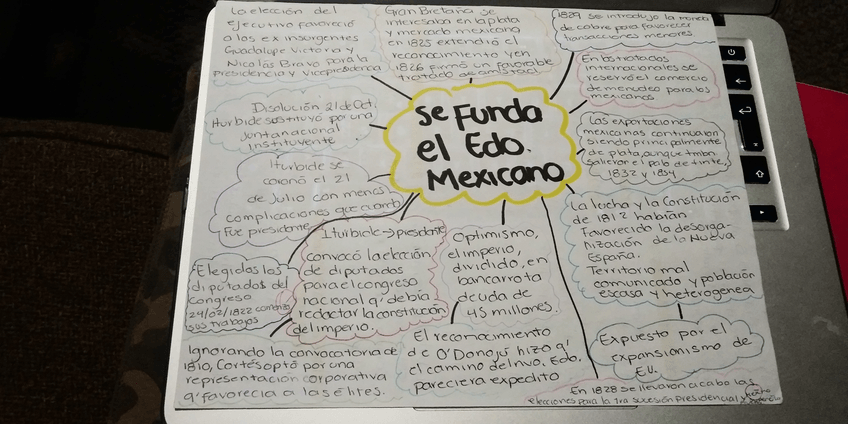 La elección del
ejecutivo favoreció
a los ex insurgentes
Guadalupe Victoria y
Nicolás Bravo para la
presidencia y vicepresidencia
Gran Bretaña se
interesaba en la plata
y mercado mexicano
en 1825 extendió el
reconocimiento y en
1826 firmó un favorable
tratado de amistad
1829 se introdujo la moneda
de cobre para favorecer
transacciones menores.
En los tratados
internacionales se
reservó el comercio
de menudeo para los
mexicanos
Disolución 21 de Oct.
Iturbide sustituyó por una
Junta nacional
Instituyente
Se Funda
el Edo.
Mexicano
Las exportaciones
mexicanas continuaron
siendo principalmente
de plata, aunque tmbn.
salieron el palo de tinte,
1832 y 1854
Iturbide se
coronó el 21
de Julio con menos
complicaciones que cuando
Fue presidente
La lucha y la Constitución
de 1812 habían
Favorecido la desorga-
nización de la Nueva
España.
Territorio mal
comunicado y población
escasa y heterogenea
Iturbide → presidente
convocó la elección
de diputados
para el congreso
nacional q' debía
redactar la constitución
del imperio.
Optimismo,
el imperio,
dividido, en
bancarrota
deuda de
45 millones.
Elegidos los
diputados del
congreso
24/02/1822
sus trabajos
Expuesto por el
expansionismo de
E.U.
Ignorando la convocatoria de
1810, Cortés optó por una
representación corporativa
q' favorecia a las élites.
El reconocimiento
de O'Donojú hizo q'
el camino del nvo. Edo.
pareciera expedito
En 1828 se llevaron a cabo las
elecciones para la 1ra sucesión presidencial y